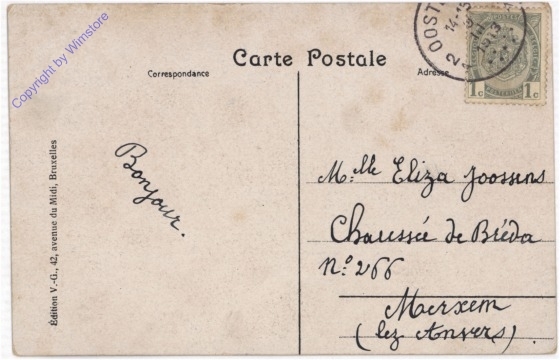 Carte Postale
Correspondance
Adresse
OOST
14-15
1913
1c 1c
Copyright by Wimstore
Édition V.-G., 42, avenue du Midi, Bruxelles
Bonjour.
M.lle Eliza Joossens
Chaussée de Bréda
N.o 266
Merxem
(lez Anvers).